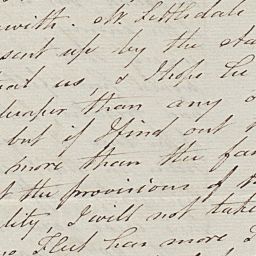 with. Mr Lettsdale
sent up by the
us, & I hope he
cheaper than any
but if I find out
more than the
the provisions of
I will not take
has more